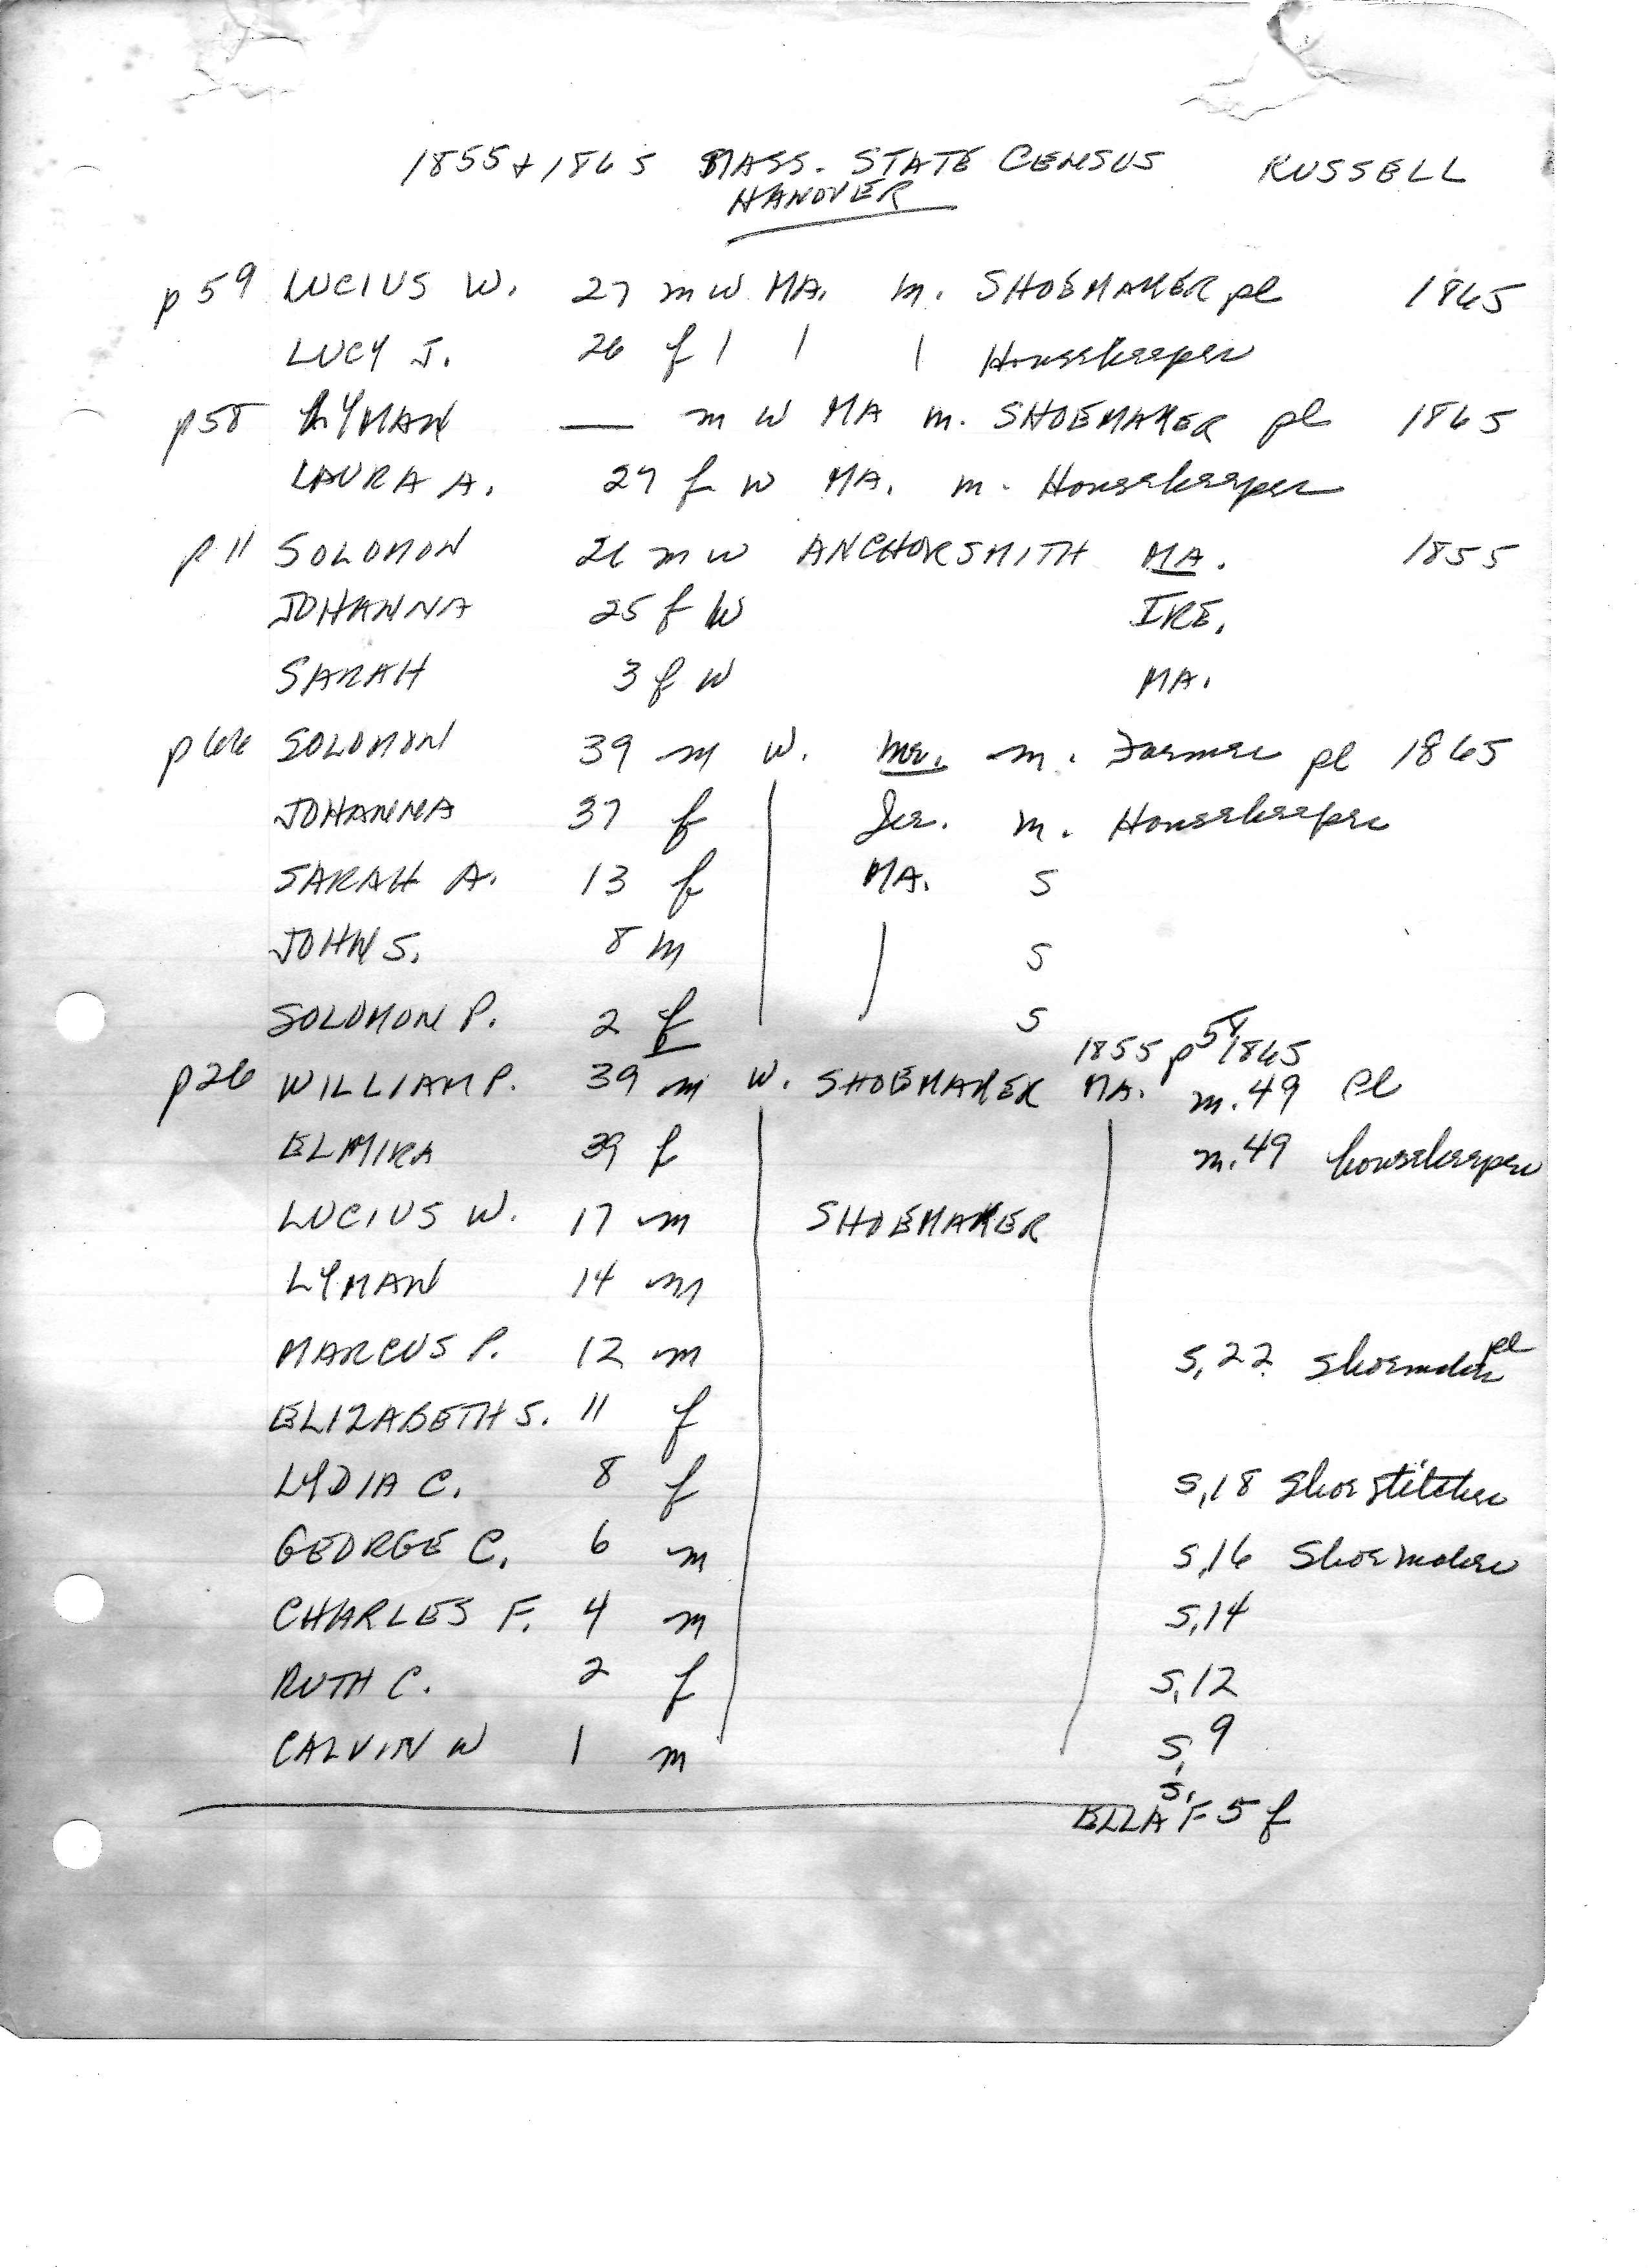 1855 + 1865 MASS. STATE CENSUS RUSSELL
HANOVER
p59 LUCIUS W. 27 m W MA. m. SHOEMAKER pl 1865
LUCY J. 26 f | | | Housekeeper
p58 LYMAN — m W MA m. SHOEMAKER pl 1865
LAURA A. 27 f W MA. m. Housekeeper
p11 SOLOMON 26 m W ANCHORSMITH MA. 1855
JOHANNA 25 f W IRE.
SARAH 3 f W MA.
p66 SOLOMON 39 m W. m. Farmer pl 1865
JOHANNA 37 f m. Housekeeper
SARAH A. 13 f MA. S
JOHN S. 8 m | S
SOLOMON P. 2 f S
1855 p58 1865
p26 WILLIAM P. 39 m W. SHOEMAKER MA. m. 49 pl
ELMIRA 39 f m. 49 housekeeper
LUCIUS W. 17 m SHOEMAKER
LYMAN 14 m
MARCUS P. 12 m S, 22 Shoemaker pl
ELIZABETH S. 11 f
LYDIA C. 8 f S, 18 Shoe stitcher
GEORGE C. 6 m S, 16 Shoemaker
CHARLES F. 4 m S, 14
RUTH C. 2 f S, 12
CALVIN W 1 m S, 9
S,
ELLA F 5 f